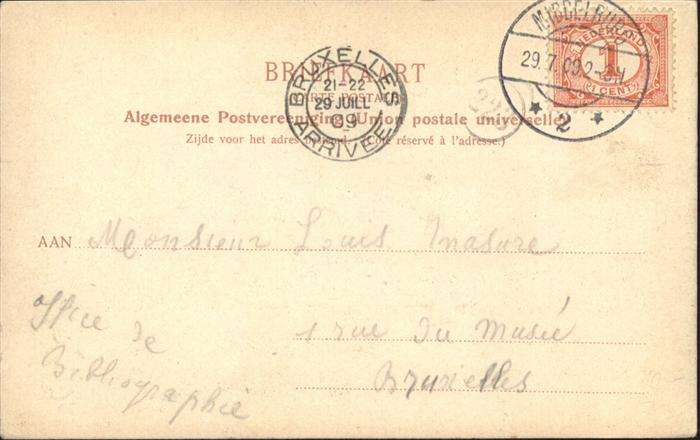 MIDDELBURG
29.7.09 2-3N
2
NEDERLAND
1
(1 CENT)
BRUXELLES
21-22
29 JUILL
09
ARRIVEE
BRIEFKAART
CARTE POSTALE
Algemeene Postvereeniging (Union postale universelle)
Zijde voor het adres bestemd. (Côté réservé à l'adresse.)
AAN Monsieur Louis Masure
Office de
Bibliographie
1 rue du Musée
Bruxelles